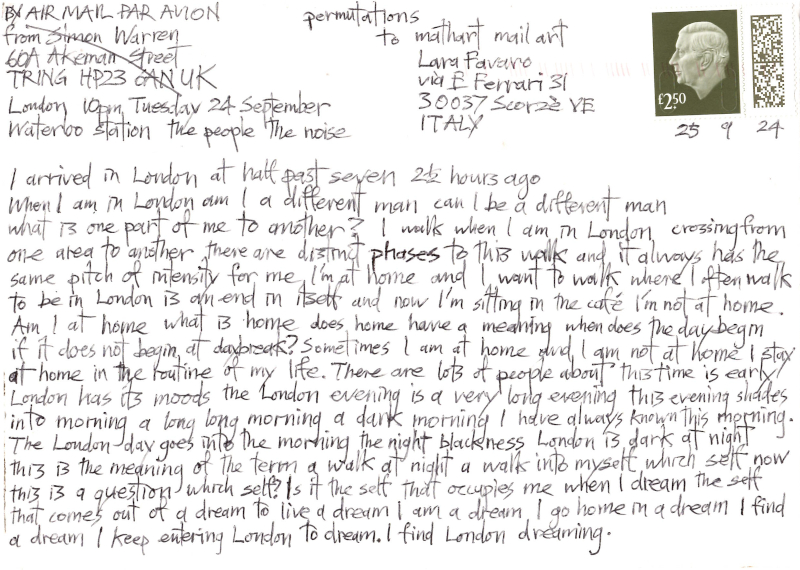 BY AIR MAIL PAR AVION
from Simon Warren
60A Akeman Street
TRING HP23 6AN UK
London 10pm Tuesday 24 September
Waterloo station the people the noise
permutations
to mathart mail art
Lara Favaro
via E Ferrari 31
30037 Scorzè VE
ITALY
£2.50
25 9 24
I arrived in London at half past seven 2½ hours ago
When I am in London am I a different man can I be a different man
what is one part of me to another? I walk when I am in London crossing from
one area to another there are distinct phases to this walk and it always has the
same pitch of intensity for me I'm at home and I want to walk where I often walk
to be in London is an end in itself and now I'm sitting in the café I'm not at home.
Am I at home what is home does home have a meaning when does the day begin
if it does not begin at daybreak? Sometimes I am at home and I am not at home I stay
at home in the routine of my life. There are lots of people about this time is early
London has its moods the London evening is a very long evening this evening shades
into morning a long long morning a dark morning I have always known this morning.
The London day goes into the morning the night blackness London is dark at night
this is the meaning of the term a walk at night a walk into myself which self now
this is a question which self? Is it the self that occupies me when I dream the self
that comes out of a dream to live a dream I am a dream I go home in a dream I find
a dream I keep entering London to dream. I find London dreaming.